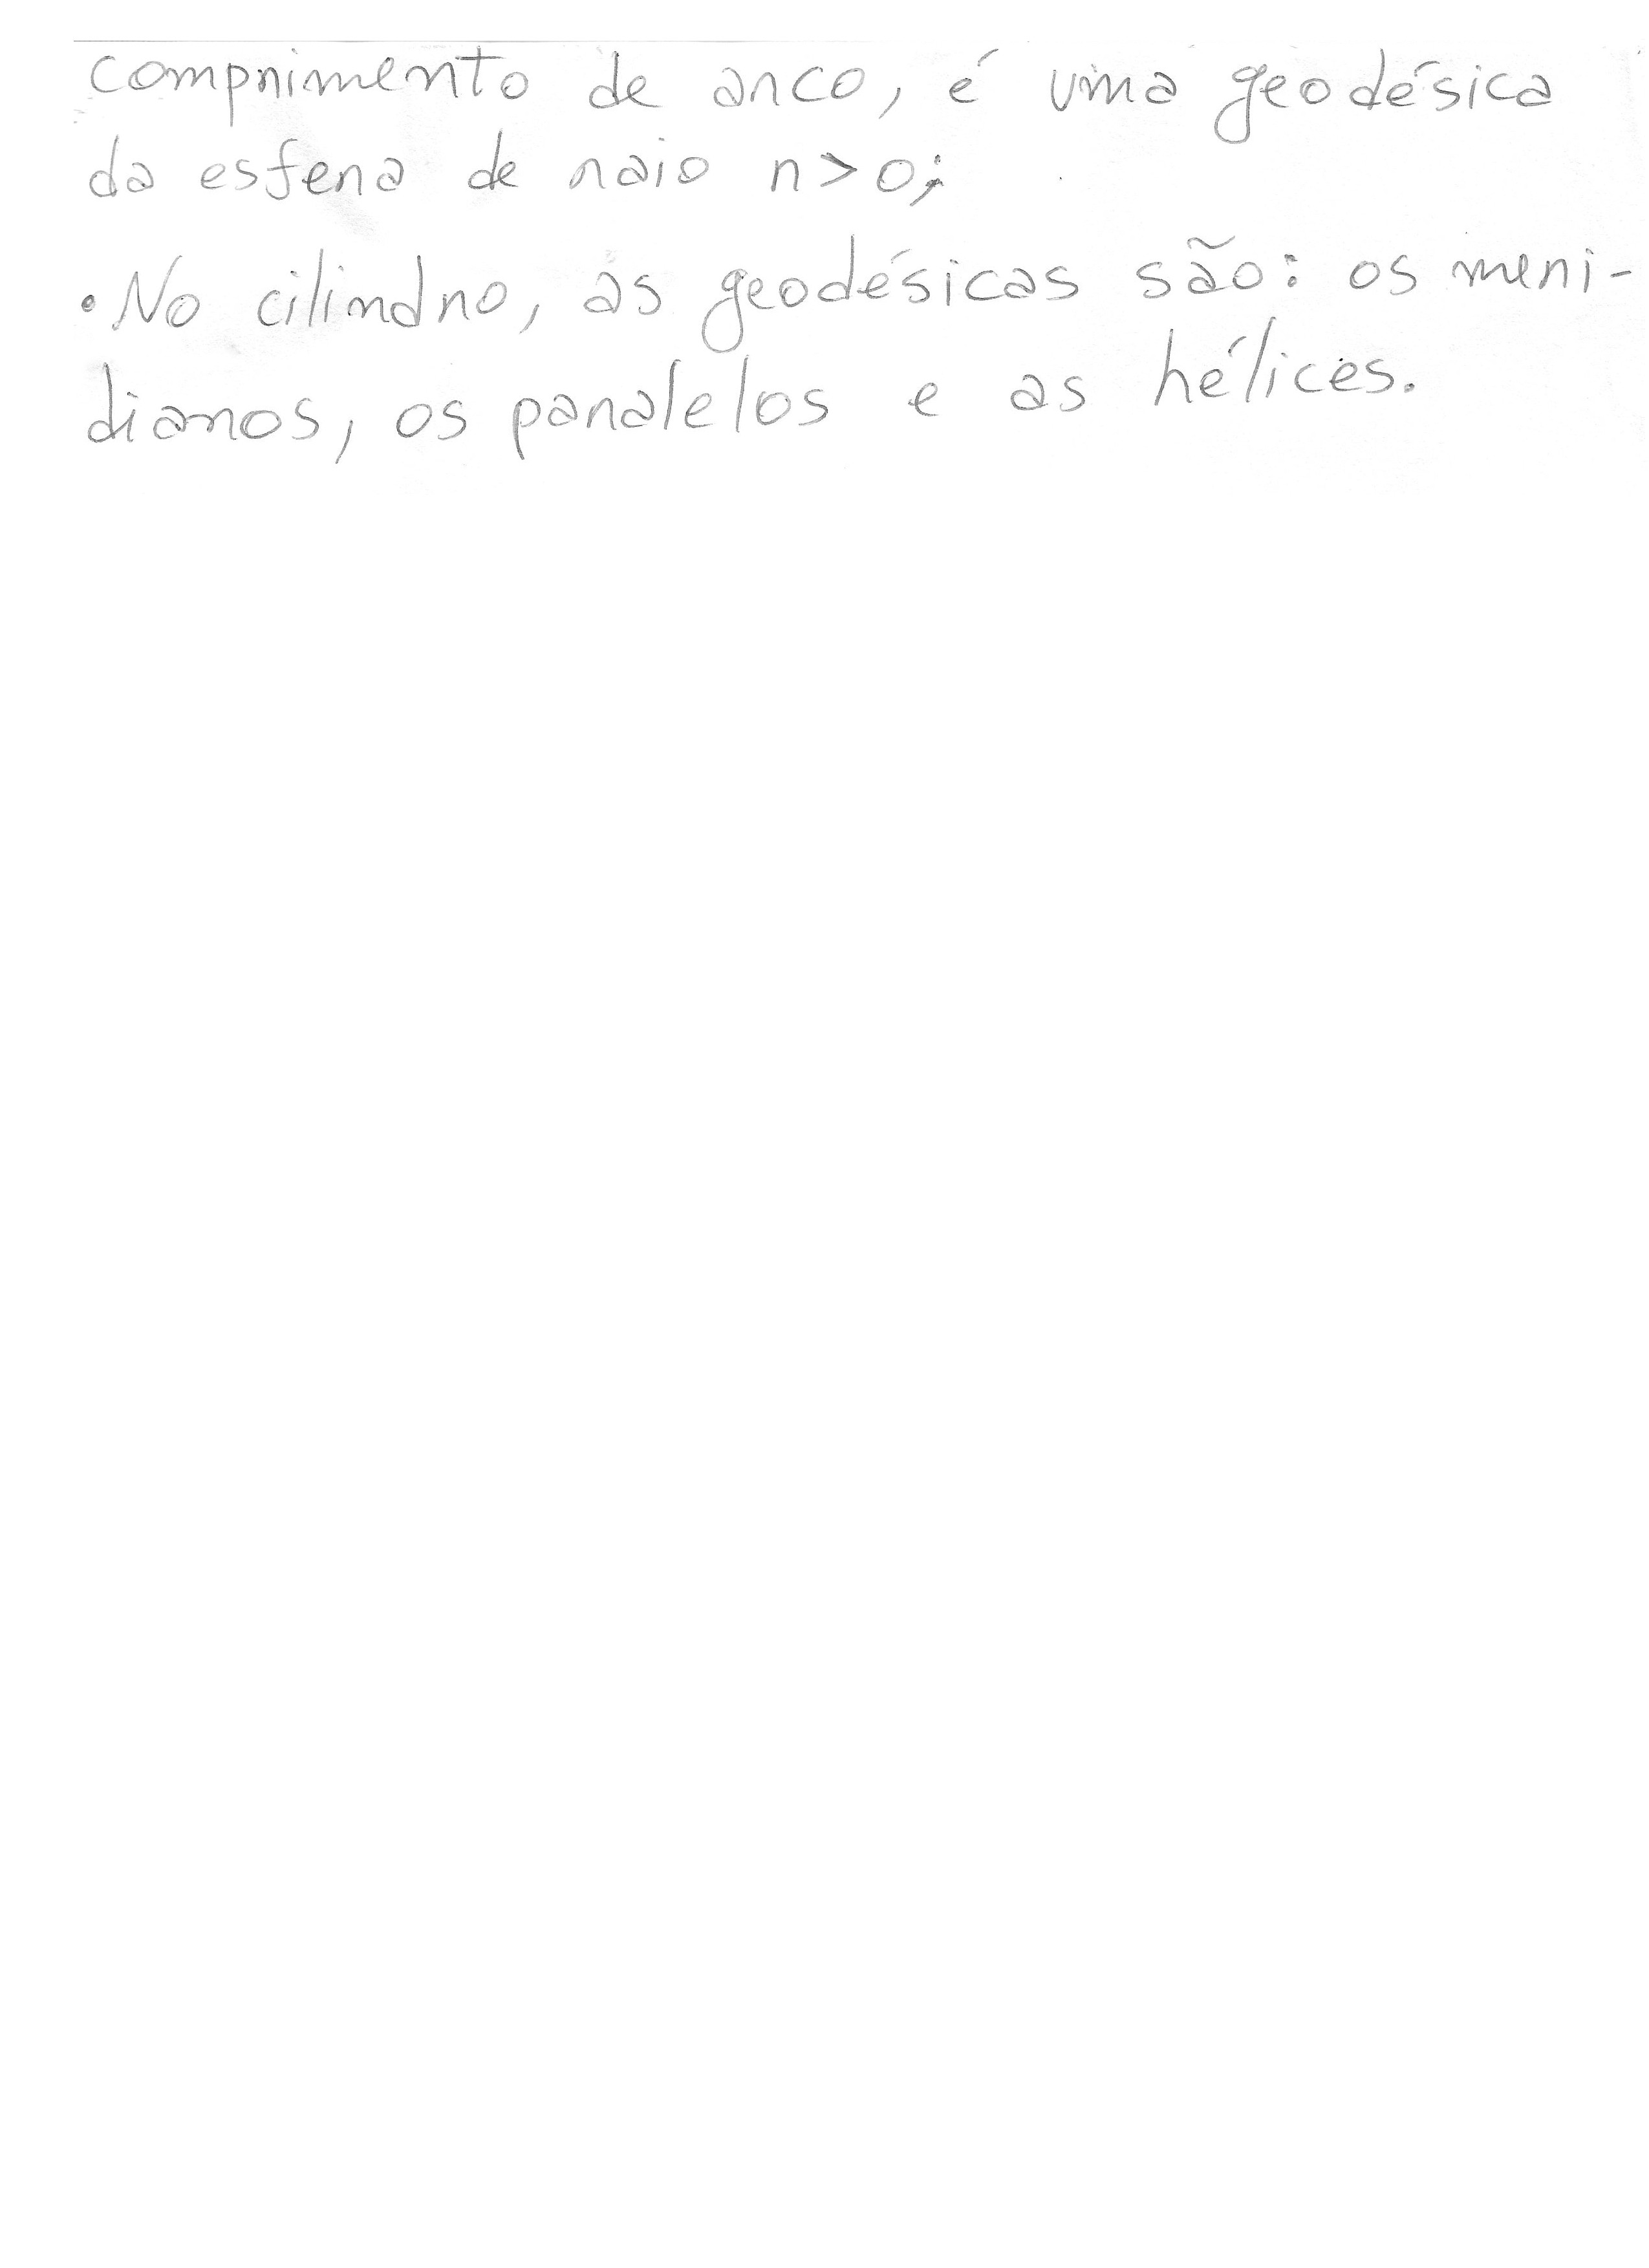 comprimento de arco, é uma geodésica
da esfera de raio r>0;
• No cilindro, as geodésicas são: os meri-
dianos, os paralelos e as hélices.